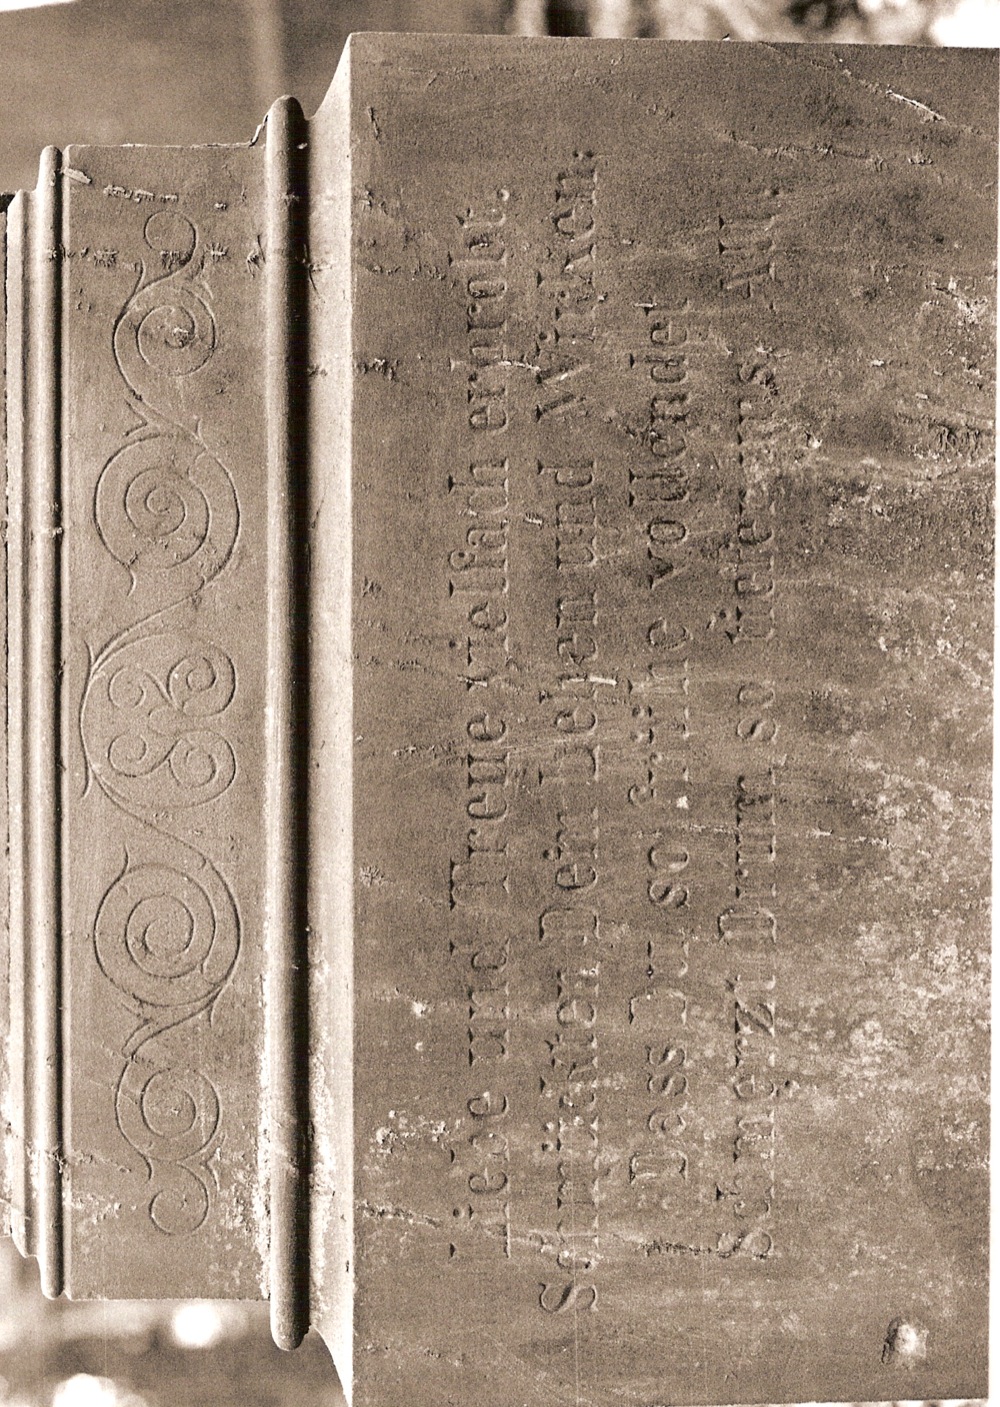 Liebe und Treue vielfach erprobt.
Schmückten Dein Leben und Wirken:
Dass Du so frühe vollendet
Schmerzt Drum so tiefer uns All'.